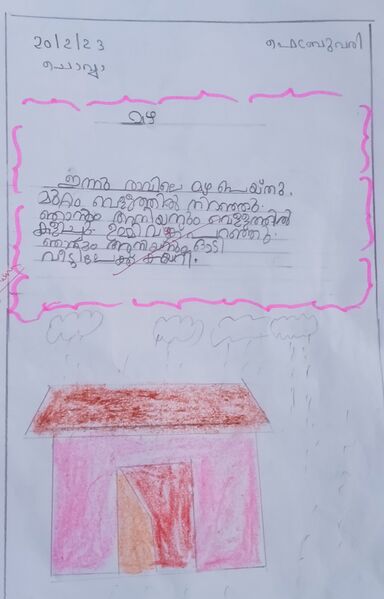 20/2/23
ഫെബ്രുവരി
ചൊവ്വ
മഴ
ഇന്നു രാവിലെ മഴ പെയ്തു.
മുറ്റം വെള്ളത്തിൽ നിറഞ്ഞു.
ഞാനും അനിയനും വെള്ളത്തിൽ
കളിച്ചു ഉമ്മ വഴക്കു പറഞ്ഞു.
ഞാനും അനിയനും ഓടി
വീട്ടിലേക്കു കയറി.